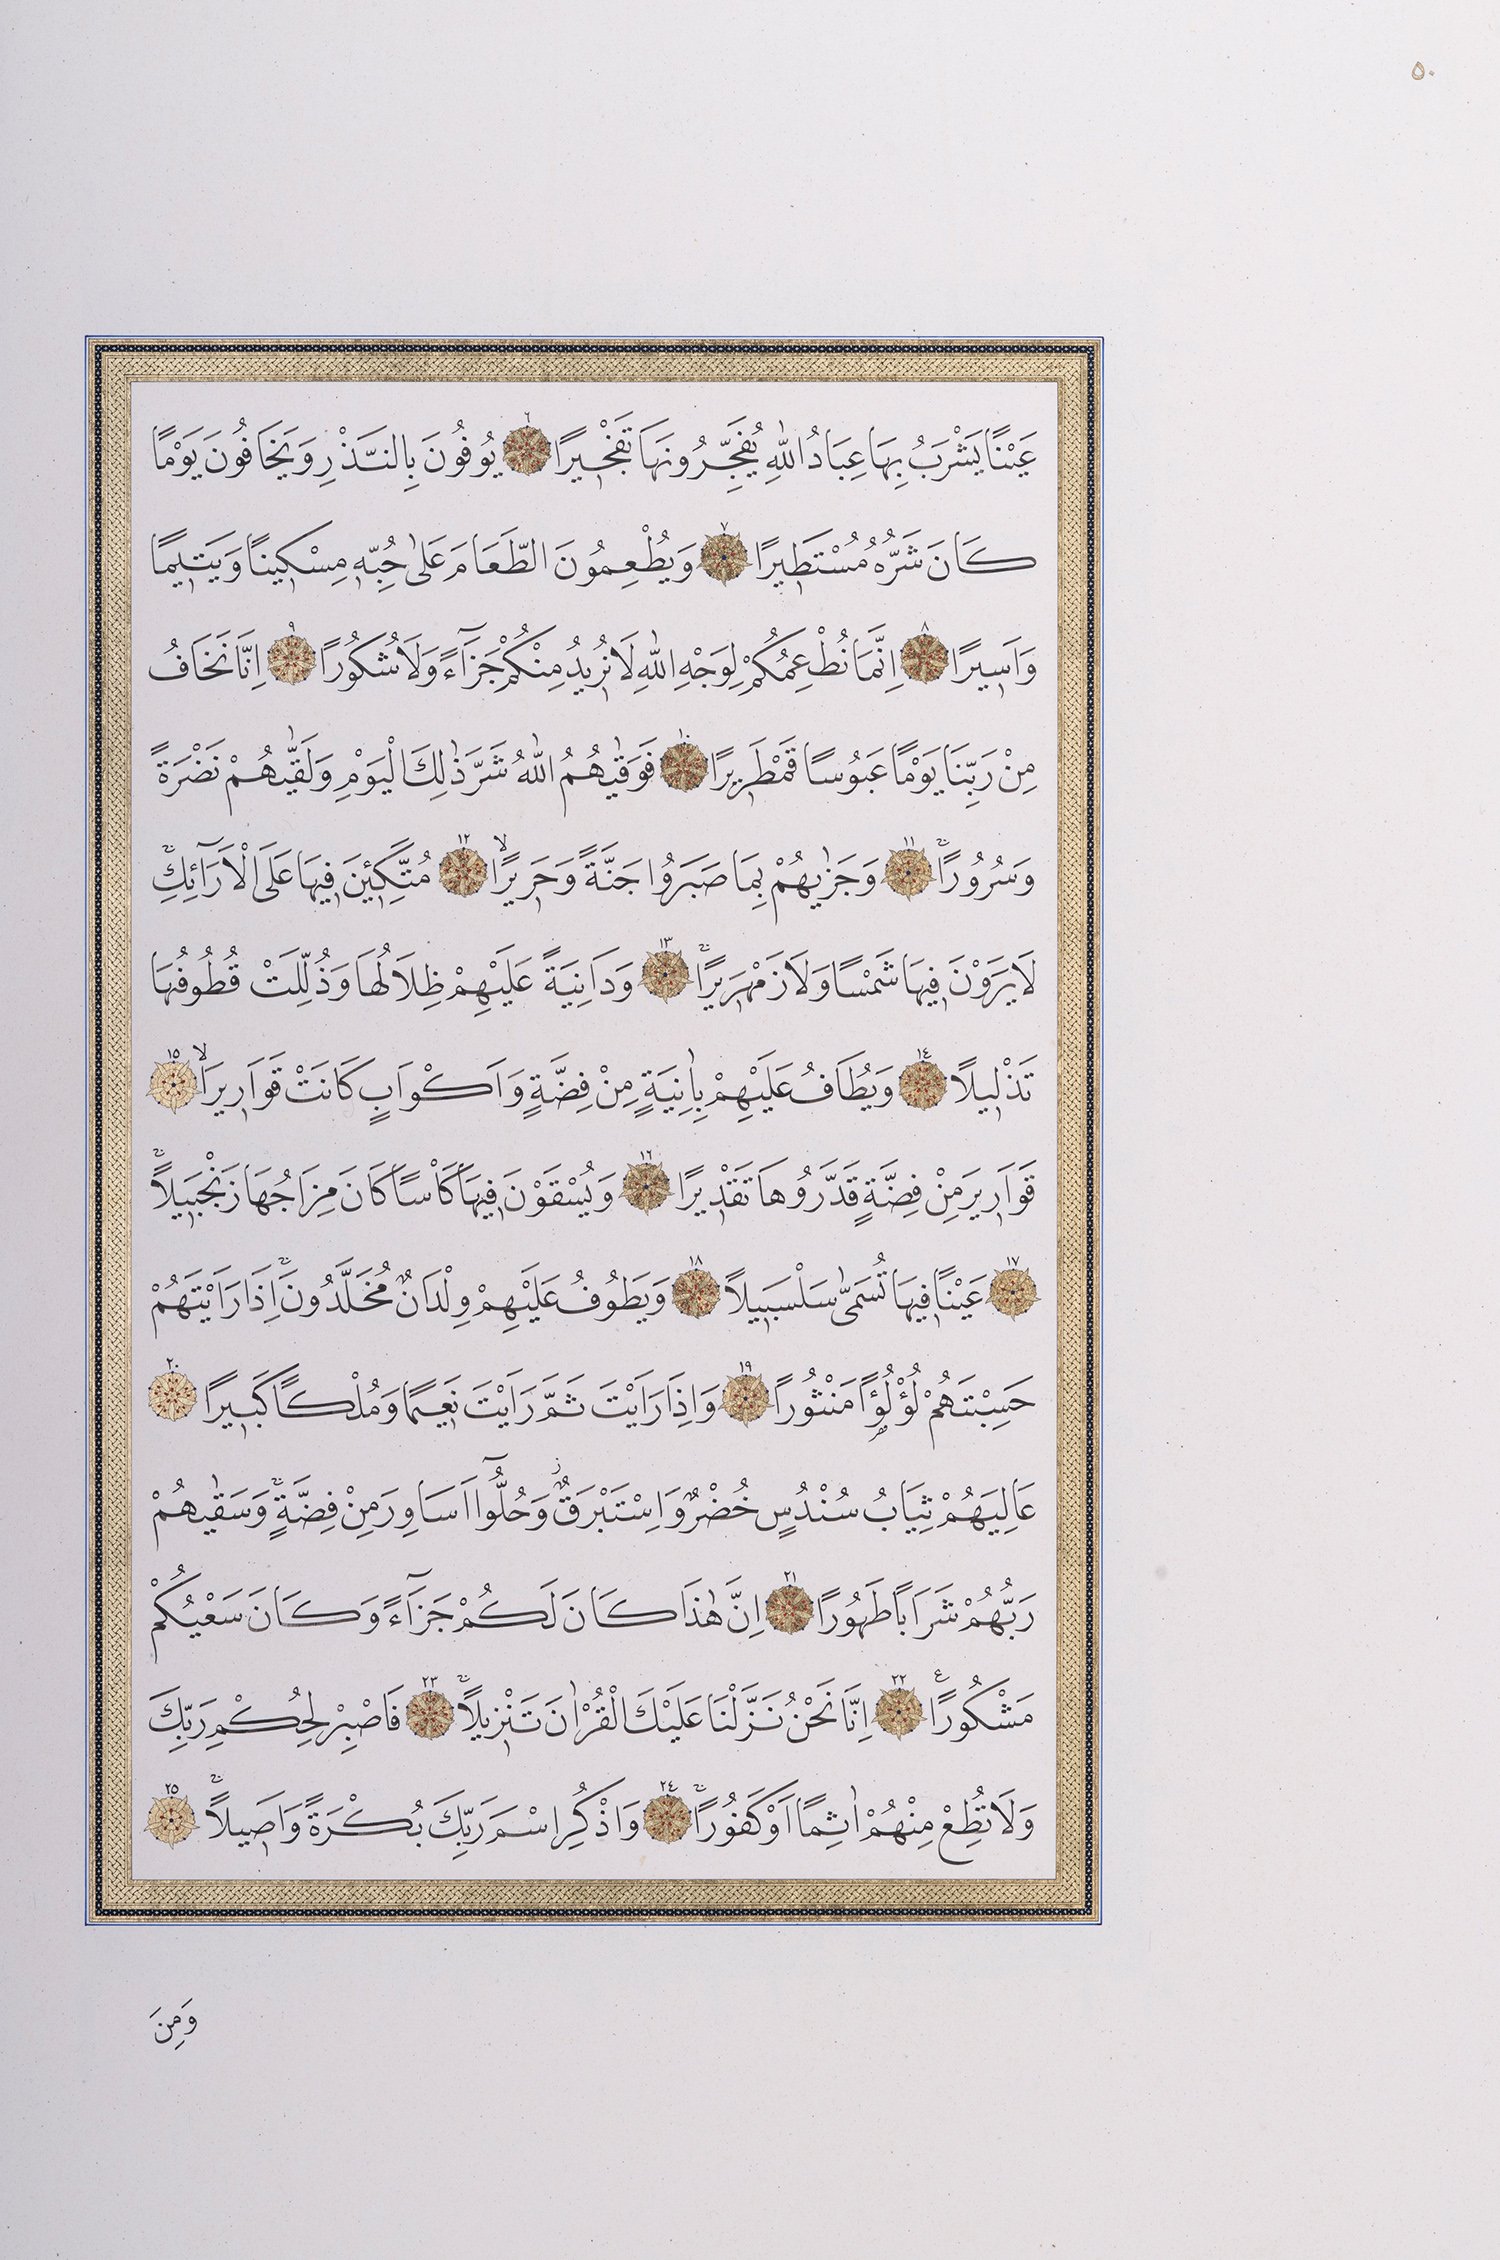 ٥٠
عَيْنًا يَشْرَبُ بِهَا عِبَادُ اللّٰهِ يُفَجِّرُونَهَا تَفْجِيرًا ٦ يُوفُونَ بِالنَّذْرِ وَيَخَافُونَ يَوْمًا
كَانَ شَرُّهُ مُسْتَطِيرًا ٧ وَيُطْعِمُونَ الطَّعَامَ عَلٰى حُبِّهِ مِسْكِينًا وَيَتِيمًا
وَاَسِيرًا ٨ اِنَّمَا نُطْعِمُكُمْ لِوَجْهِ اللّٰهِ لَا نُرِيدُ مِنْكُمْ جَزَٓاءً وَلَا شُكُورًا ٩ اِنَّا نَخَافُ
مِنْ رَبِّنَا يَوْمًا عَبُوسًا قَمْطَرِيرًا ١٠ فَوَقٰيهُمُ اللّٰهُ شَرَّ ذٰلِكَ الْيَوْمِ وَلَقّٰيهُمْ نَضْرَةً
وَسُرُورًاۚ ١١ وَجَزٰيهُمْ بِمَا صَبَرُوا جَنَّةً وَحَرِيرًاۙ ١٢ مُتَّكِئِينَ فِيهَا عَلَى الْاَرَٓائِكِۚ
لَا يَرَوْنَ فِيهَا شَمْسًا وَلَا زَمْهَرِيرًاۚ ١٣ وَدَانِيَةً عَلَيْهِمْ ظِلَالُهَا وَذُلِّلَتْ قُطُوفُهَا
تَذْلِيلًا ١٤ وَيُطَافُ عَلَيْهِمْ بِاٰنِيَةٍ مِنْ فِضَّةٍ وَاَكْوَابٍ كَانَتْ قَوَارِيرَاۙ ١٥
قَوَارِيرَ مِنْ فِضَّةٍ قَدَّرُوهَا تَقْدِيرًا ١٦ وَيُسْقَوْنَ فِيهَا كَاْسًا كَانَ مِزَاجُهَا زَنْجَبِيلًاۚ
١٧ عَيْنًا فِيهَا تُسَمّٰى سَلْسَبِيلًا ١٨ وَيَطُوفُ عَلَيْهِمْ وِلْدَانٌ مُخَلَّدُونَۚ اِذَا رَاَيْتَهُمْ
حَسِبْتَهُمْ لُؤْلُؤًا مَنْثُورًا ١٩ وَاِذَا رَاَيْتَ ثَمَّ رَاَيْتَ نَعِيمًا وَمُلْكًا كَبِيرًا ٢٠
عَالِيَهُمْ ثِيَابُ سُنْدُسٍ خُضْرٌ وَاِسْتَبْرَقٌۘ وَحُلُّٓوا اَسَاوِرَ مِنْ فِضَّةٍۚ وَسَقٰيهُمْ
رَبُّهُمْ شَرَابًا طَهُورًا ٢١ اِنَّ هٰذَا كَانَ لَكُمْ جَزَٓاءً وَكَانَ سَعْيُكُمْ
مَشْكُورًاۚ ٢٢ اِنَّا نَحْنُ نَزَّلْنَا عَلَيْكَ الْقُرْاٰنَ تَنْزِيلًاۚ ٢٣ فَاصْبِرْ لِحُكْمِ رَبِّكَ
وَلَا تُطِعْ مِنْهُمْ اٰثِمًا اَوْ كَفُورًاۚ ٢٤ وَاذْكُرِ اسْمَ رَبِّكَ بُكْرَةً وَاَصِيلًاۚ ٢٥
وَمِنَ